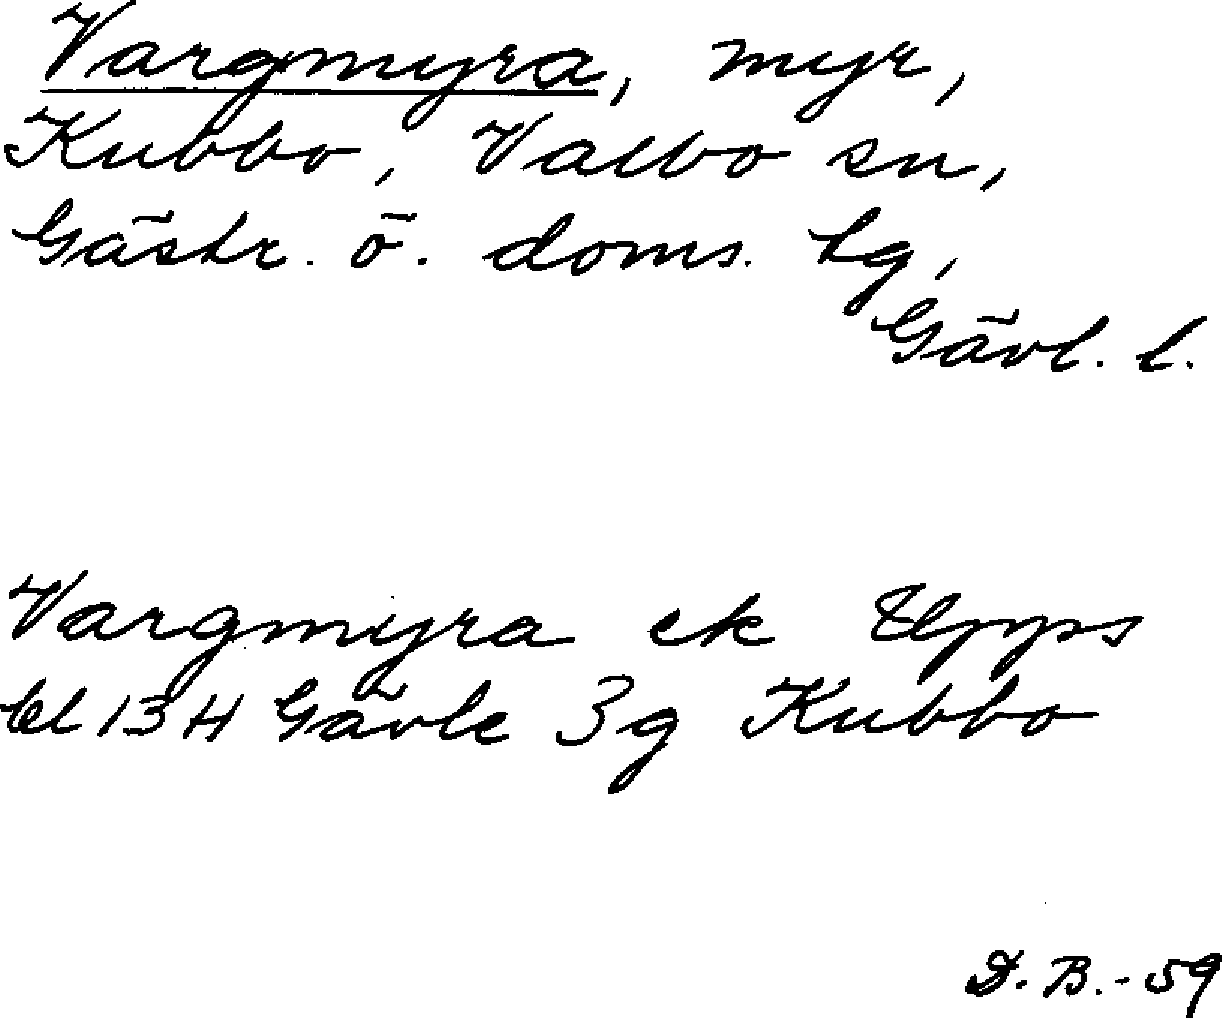 Vargmyra, myr,
Kubbo, Valbo sn,
Gästr. ö. doms. tg,
Gävl. l.
Vargmyra ek Upps
bl 13 H Gävle 3g Kubbo
D. B.-59